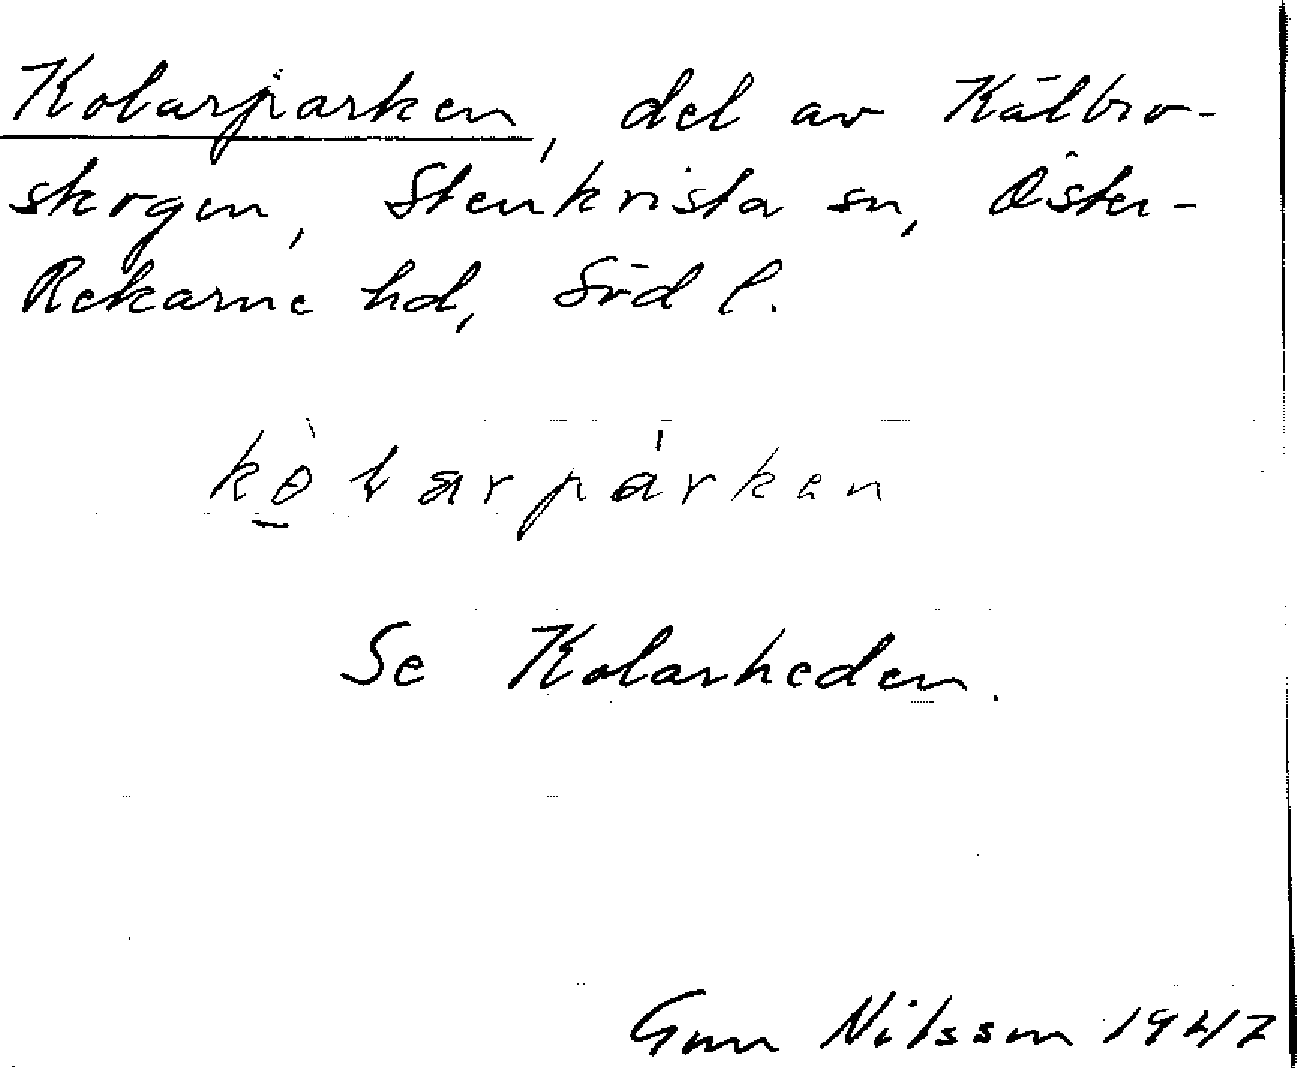 Kolarparken, del av Kälbro-
skogen, Stenkvista sn, Öster-
Rekarne hd, Söd l.
kòlarpárken
Se Kolarheden.
Gun Nilsson 1947